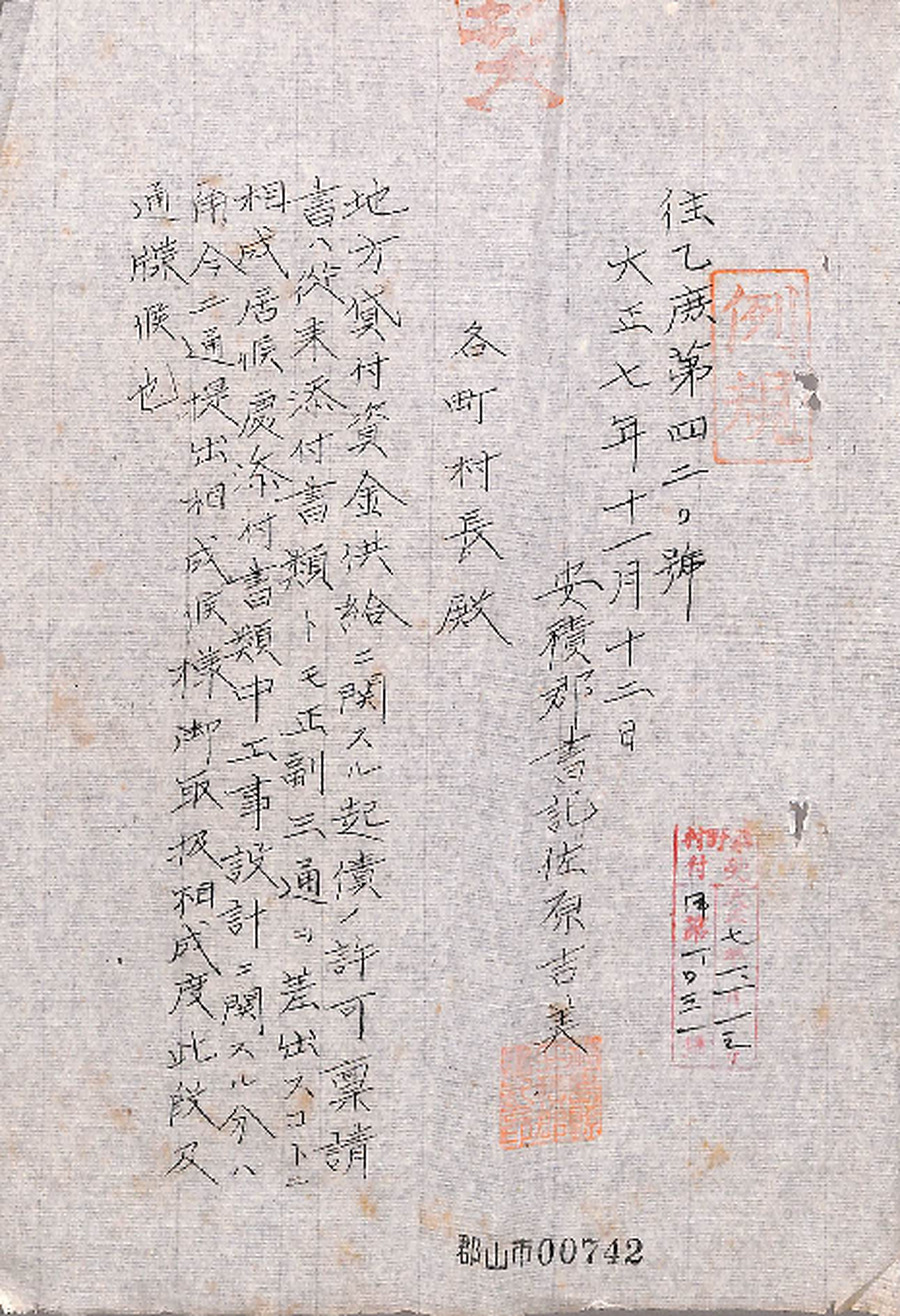 例規
往乙庶第四二〇號
大正七年十一月十二日
安積郡書記佐原吉美
各町村長殿
地方貸付資金供給ニ関スル起債ノ許可稟請
書ハ從来添付書類トモ正副三通ヲ差出スコトニ
相成居候處添付書類中工事設計ニ関スル分ハ
尓今二通提出相成候様御取扱相成度此段及
通牒候也
郡山市00742